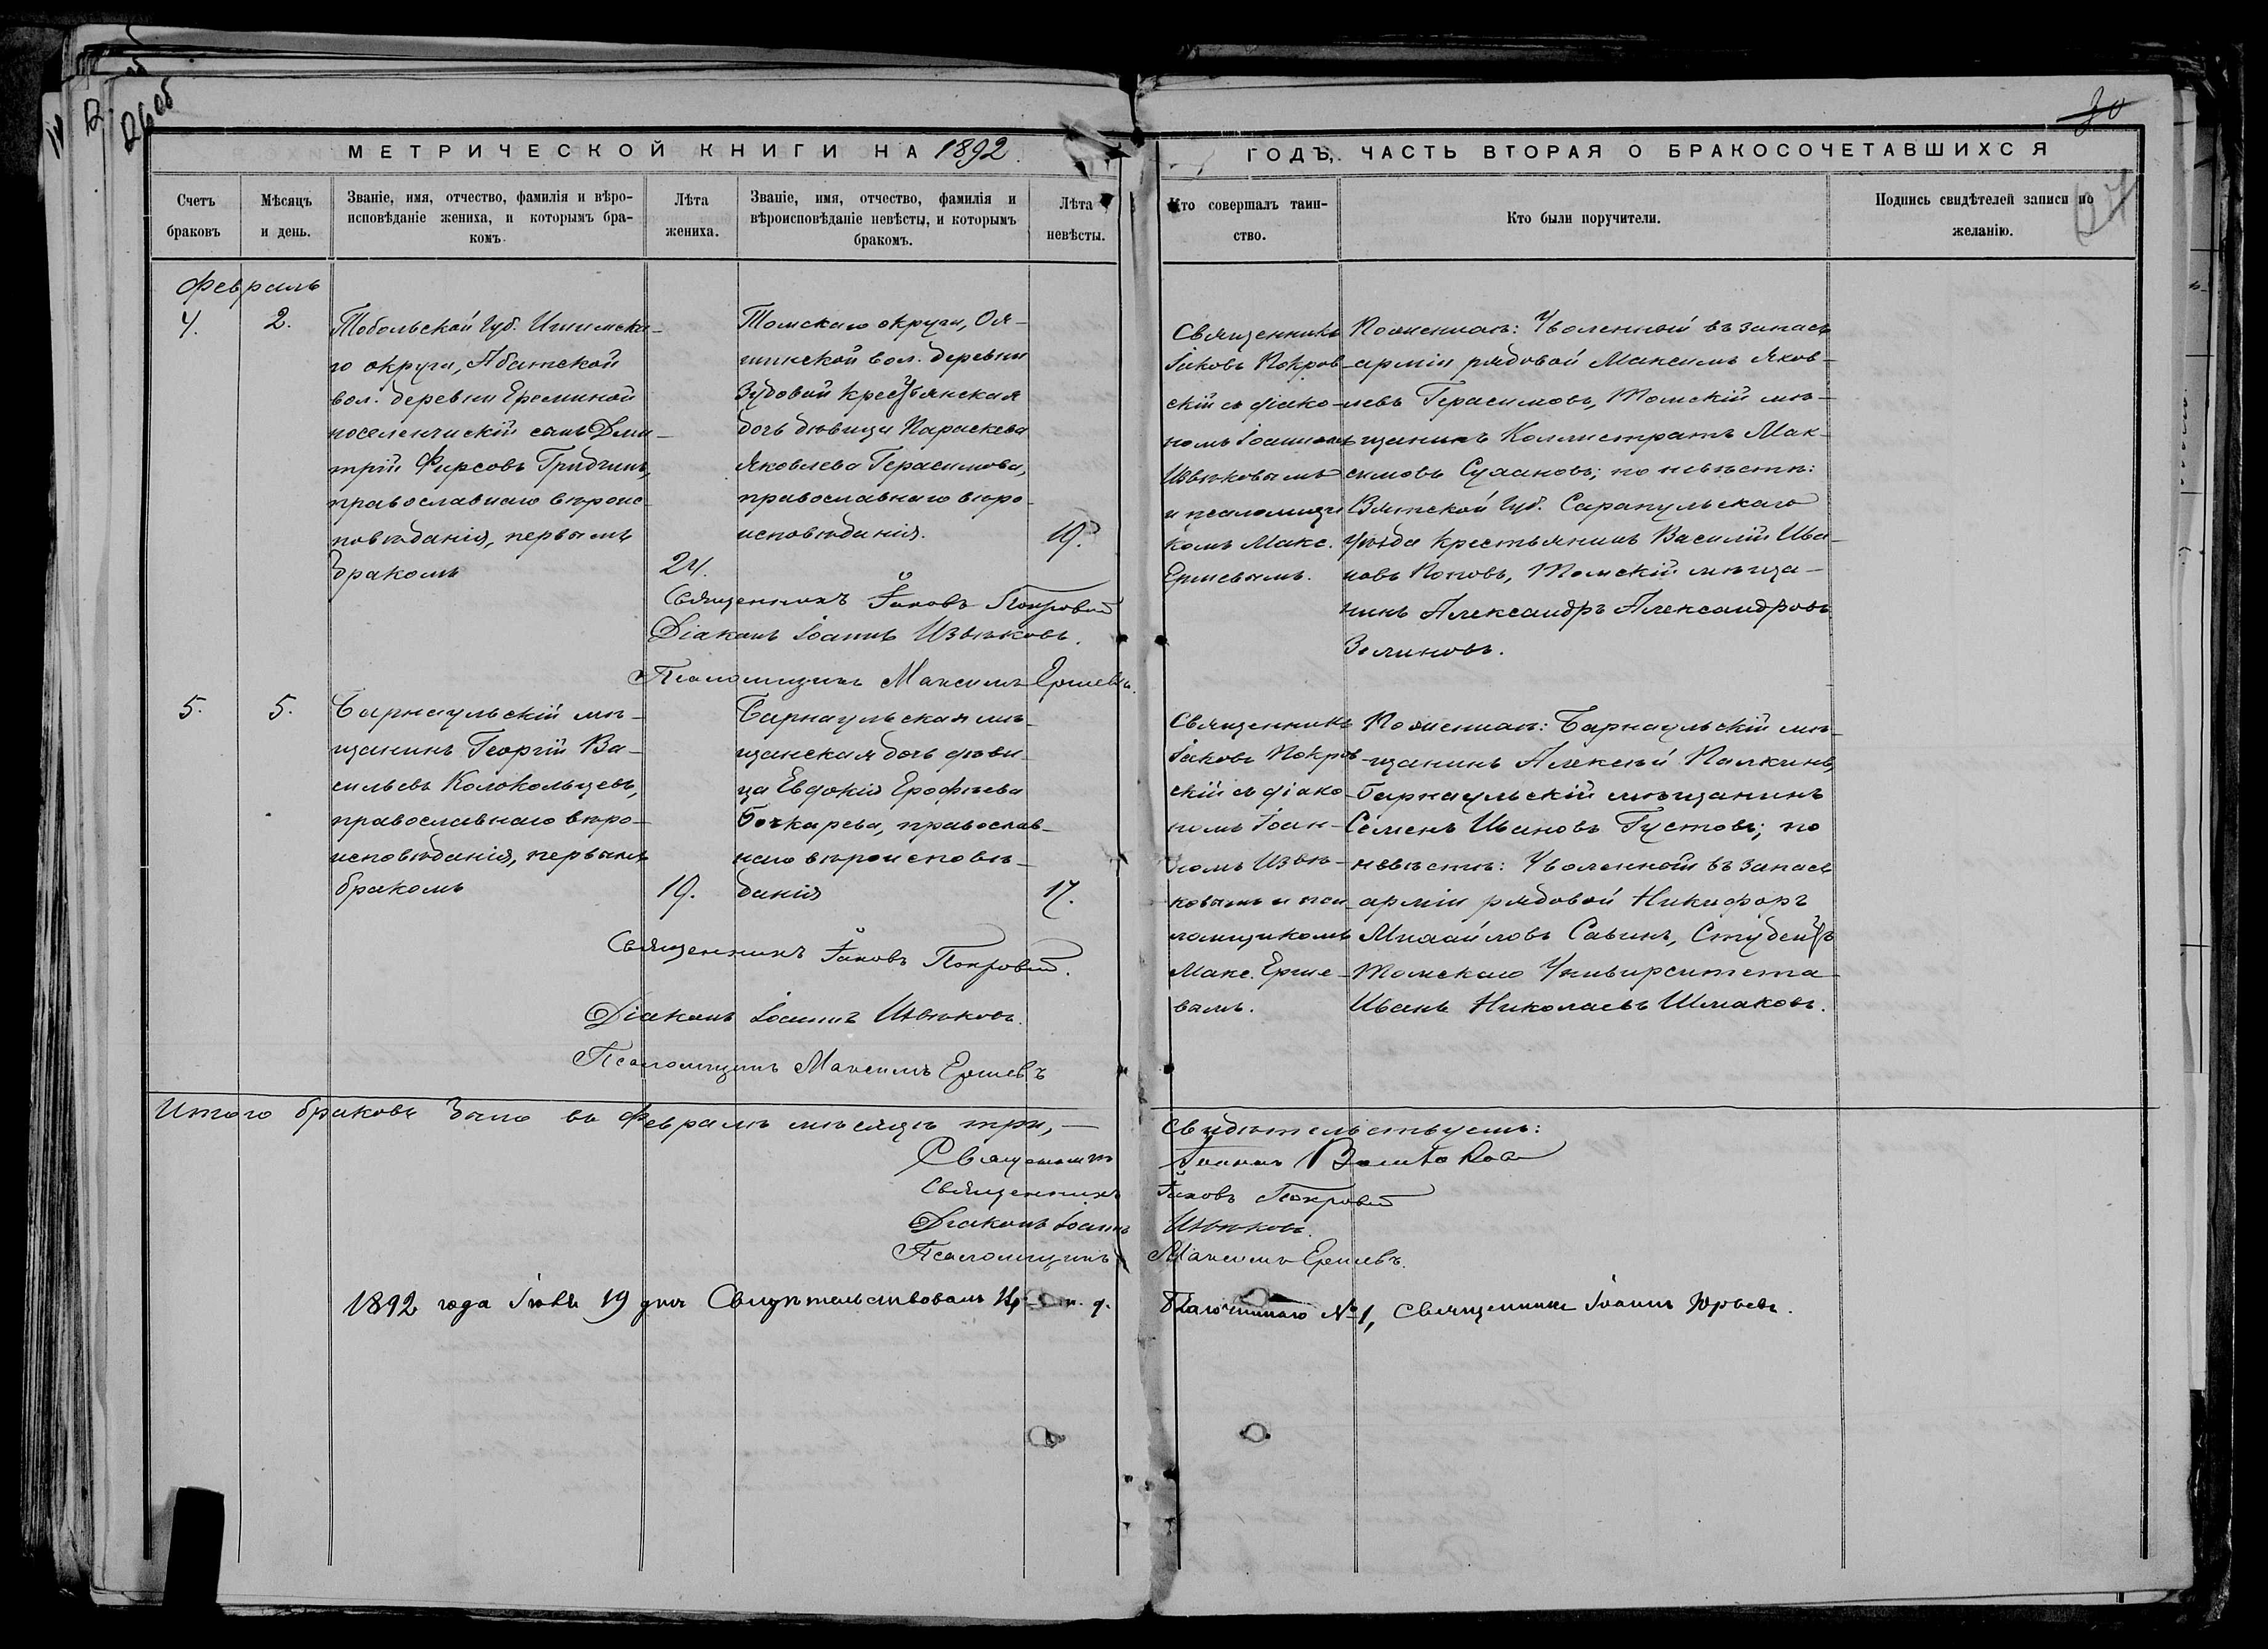 26 об
30
27
МЕТРИЧЕСКОЙ КНИГИ НА 1892
ГОДЪ, ЧАСТЬ ВТОРАЯ О БРАКОСОЧЕТАВШИХСЯ
Счетъ
браковъ
Мѣсяцъ
и день.
Званіе, имя, отчество, фамилія и вѣро-
исповѣданіе жениха, и которымъ бра-
комъ.
Лѣта
жениха.
Званіе, имя, отчество, фамилія и
вѣроисповѣданіе невѣсты, и которымъ
бракомъ.
Лѣта
невѣсты.
Кто совершалъ таин-
ство.
Кто были поручители.
Подпись свидѣтелей записи по
желанію.
Февраль
4.
2.
Тобольской Губ. Ишимска-
го округа, Абатской
вол. деревни Ереминой
поселенческій сынъ Дми-
трій Фирсовъ Гридчинъ,
православнаго вѣроис-
повѣданія, первымъ
бракомъ
24.
Томскаго округа, Оя-
шинской вол. деревни
Зудовой крестьянская
дочь дѣвица Параскева
Яковлева Герасимова,
православнаго вѣро-
исповѣданія.
19.
Священникъ
Іаковъ Покров-
скій съ діако-
номъ Іоанномъ
Извѣковымъ
и псаломщи-
комъ Макс.
Ершевымъ.
По женихѣ: Уволенной въ запасъ
арміи рядовой Максимъ Яков-
левъ Герасимовъ, Томскій мѣ-
щанинъ Коллистратъ Мак-
симовъ Сухановъ; по невѣстѣ:
Вятской Губ. Сарапульскаго
уѣзда крестьянинъ Василій Ива-
новъ Поповъ, Томскій мѣща-
нинъ Александръ Александровъ
Зелиновъ.
Священникъ Іаковъ Покровскій
Діаконъ Іоаннъ Извѣковъ.
Псаломщикъ Максимъ Ершевъ.
5.
5.
Барнаульскій мѣ-
щанинъ Георгій Ва-
сильевъ Колокольцевъ,
православнаго вѣро-
исповѣданія, первымъ
бракомъ
19.
Барнаульская мѣ-
щанская дочь дѣви-
ца Евдокія Ерофѣева
Бочкарева, православ-
наго вѣроисповѣ-
данія
17.
Священникъ
Іаковъ Покров-
скій съ діако-
номъ Іоан-
номъ Извѣ-
ковымъ и пса-
ломщикомъ
Макс. Ерше-
вымъ.
По женихѣ: Барнаульскій мѣ-
щанинъ Алексѣй Палкинъ,
Барнаульскій мѣщанинъ
Семенъ Ивановъ Густовъ; по
невѣстѣ: Уволенной въ запасъ
арміи рядовой Никифоръ
Михайловъ Савинъ, Студентъ
Томскаго Университета
Иванъ Николаевъ Шмаковъ.
Священникъ Іаковъ Покровскій.
Діаконъ Іоаннъ Извѣковъ.
Псаломщикъ Максимъ Ершевъ
Итого браковъ было въ Февралѣ мѣсяцѣ три,—
Свидѣтельствуемъ:
Священникъ Іоаннъ
Священникъ Іаковъ Покровскій
Діаконъ Іоаннъ Извѣковъ.
Псаломщикъ Максимъ Ершевъ.
1892 года Іюля 19 дня Свидѣтельствовалъ
Благочиннаго №1, Священникъ Іоаннъ Юрьевъ.